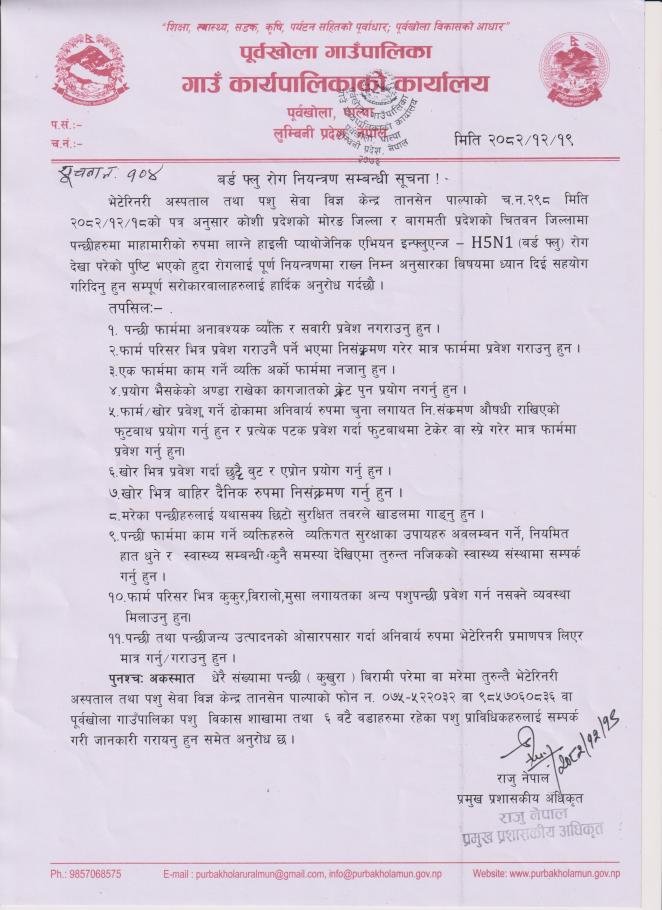 "शिक्षा, स्वास्थ्य, सडक, कृषि, पर्यटन सहितको पूर्वाधार; पूर्वखोला विकासको आधार"
पूर्वखोला गाउँपालिका
गाउँ कार्यपालिकाको कार्यालय
पूर्वखोला, पाल्पा
लुम्बिनी प्रदेश, नेपाल
प.सं.:–
च.नं.:–
मिति २०८२/१२/१९
सूचना नं. १०४
बर्ड फ्लु रोग नियन्त्रण सम्बन्धी सूचना !-
भेटेरिनरी अस्पताल तथा पशु सेवा विज्ञ केन्द्र तानसेन पाल्पाको च.न.२९८ मिति
२०८२/१२/१८को पत्र अनुसार कोशी प्रदेशको मोरङ जिल्ला र बागमती प्रदेशको चितवन जिल्लामा
पन्छीहरुमा माहामारीको रुपमा लाग्ने हाइली प्याथोजेनिक एभियन इन्फ्लुएन्ज – H5N1 (बर्ड फ्लु) रोग
देखा परेको पुष्टि भएको हुदा रोगलाई पूर्ण नियन्त्रणमा राख्न निम्न अनुसारका विषयमा ध्यान दिई सहयोग
गरिदिनु हुन सम्पूर्ण सरोकारवालाहरुलाई हार्दिक अनुरोध गर्दछौ ।
तपसिलः– .
१. पन्छी फार्ममा अनावश्यक व्यक्ति र सवारी प्रवेश नगराउनु हुन ।
२.फार्म परिसर भित्र प्रवेश गराउनै पर्ने भएमा निसंक्रमण गरेर मात्र फार्ममा प्रवेश गराउनु हुन ।
३.एक फार्ममा काम गर्ने व्यक्ति अर्को फार्ममा नजानु हुन ।
४.प्रयोग भैसकेको अण्डा राखेका कागजातको क्रेट पुन प्रयोग नगर्नु हुन ।
५.फार्म/खोर प्रवेश गर्ने ढोकामा अनिवार्य रुपमा चुना लगायत नि.संक्रमण औषधी राखिएको
फुटवाथ प्रयोग गर्नु हुन र प्रत्येक पटक प्रवेश गर्दा फुटबाथमा टेकेर वा स्प्रे गरेर मात्र फार्ममा
प्रवेश गर्नु हुन।
६.खोर भित्र प्रवेश गर्दा छुट्टै बुट र एप्रोन प्रयोग गर्नु हुन ।
७.खोर भित्र बाहिर दैनिक रुपमा निसंक्रमण गर्नु हुन ।
८.मरेका पन्छीहरुलाई यथासक्य छिटो सुरक्षित तवरले खाडलमा गाड्नु हुन ।
९.पन्छी फार्ममा काम गर्ने व्यक्तिहरुले व्यक्तिगत सुरक्षाका उपायहरु अवलम्बन गर्ने, नियमित
हात धुने र स्वास्थ्य सम्बन्धी कुनै समस्या देखिएमा तुरुन्त नजिकको स्वास्थ्य संस्थामा सम्पर्क
गर्नु हुन ।
१०.फार्म परिसर भित्र कुकुर,विरालो,मुसा लगायतका अन्य पशुपन्छी प्रवेश गर्न नसक्ने व्यवस्था
मिलाउनु हुन।
११.पन्छी तथा पन्छीजन्य उत्पादनको ओसारपसार गर्दा अनिवार्य रुपमा भेटेरिनरी प्रमाणपत्र लिएर
मात्र गर्नु/गराउनु हुन ।
पुनश्चः अकस्मात धेरै संख्यामा पन्छी ( कुखुरा ) विरामी परेमा वा मरेमा तुरुन्तै भेटेरिनरी
अस्पताल तथा पशु सेवा विज्ञ केन्द्र तानसेन पाल्पाको फोन न. ०७५-५२२०३२ वा ९८५७०६०८३६ वा
पूर्वखोला गाउँपालिका पशु विकास शाखामा तथा ६ वटै वडाहरुमा रहेका पशु प्राविधिकहरुलाई सम्पर्क
गरी जानकारी गरायनु हुन समेत अनुरोध छ ।
२०८२/१२/१९
राजु नेपाल
प्रमुख प्रशासकीय अधिकृत
राजु नेपाल
प्रमुख प्रशासकीय अधिकृत
Ph.: 9857068575 E-mail : purbakholaruralmun@gmail.com, info@purbakholamun.gov.np Website: www.purbakholamun.gov.np